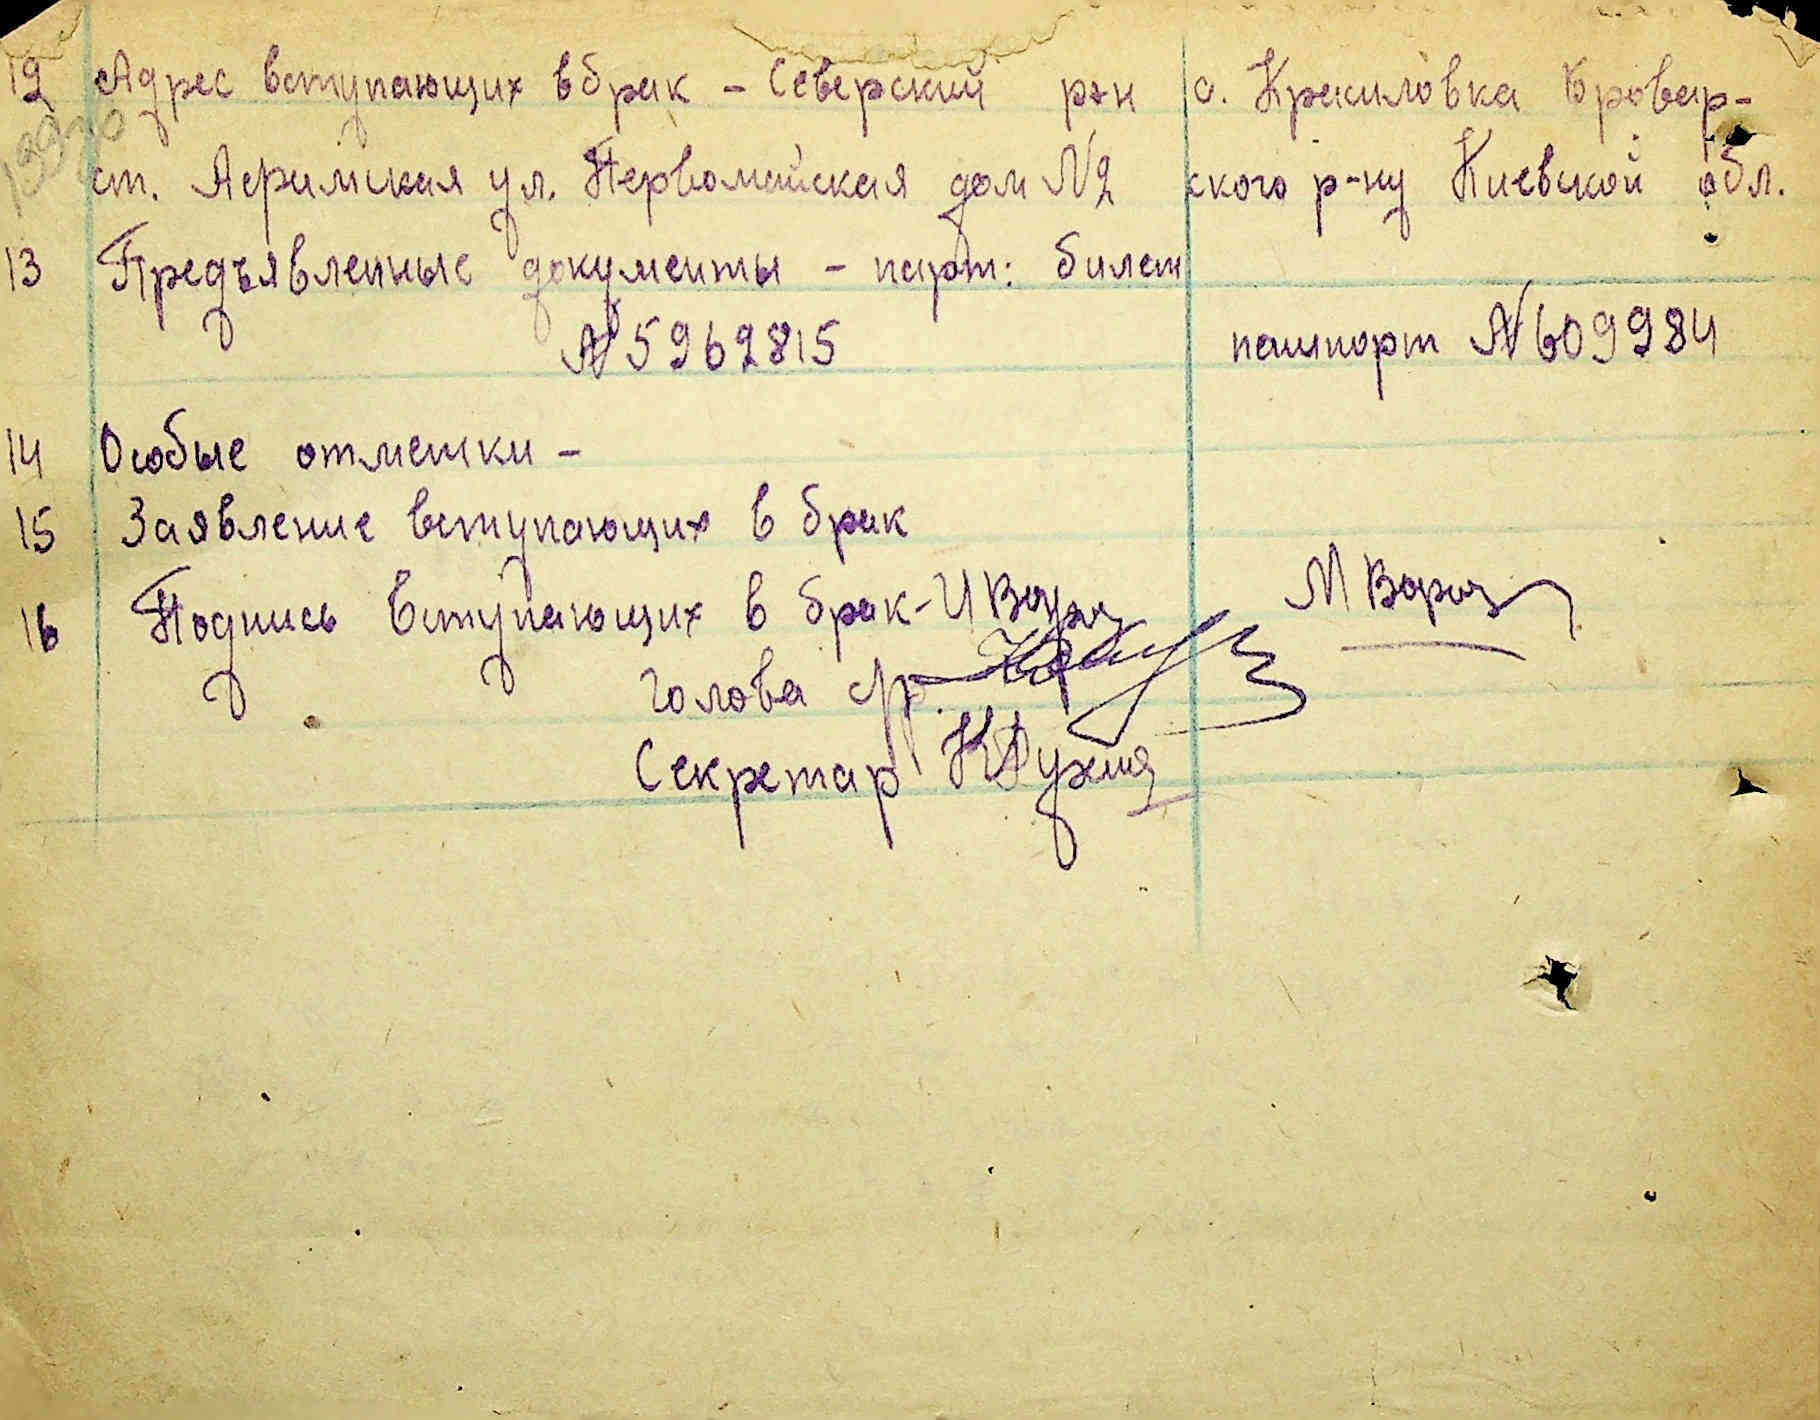 12 Адрес вступающих в брак - Северский р-н с. Красиловка Бровар-
ст. Афипская ул. Первомайская дом №2 ского р-ну Киевской обл.
13 Предъявленные документы - парт: билет
№5962815 пашпорт №609984
14 Особые отметки -
15 Заявление вступающих в брак
16 Подпись вступающих в брак - И М
Голова с/р.
Секретар